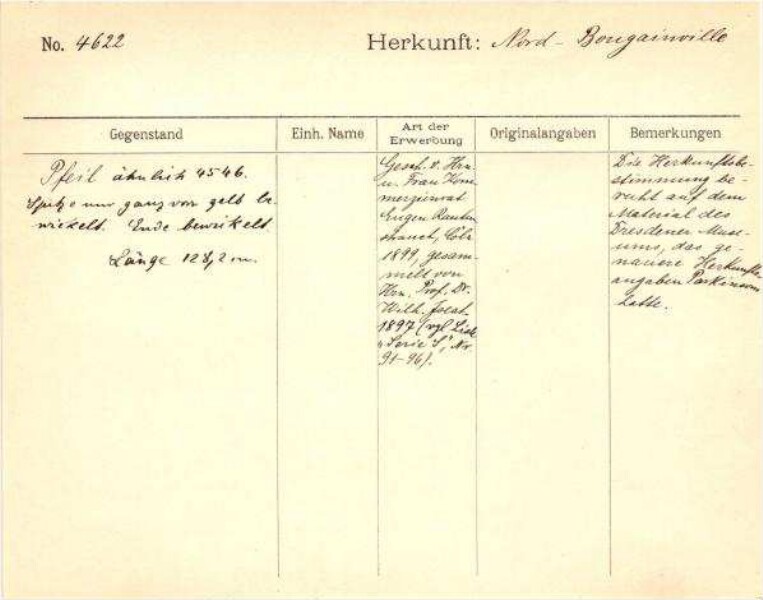 No. 4622
Herkunft: Nord - Bougainville
Gegenstand
Einh. Name
Art der Erwerbung
Originalangaben
Bemerkungen
Pfeil ähnlich 4546.
Spitze nur ganz vorn gelb be-
wickelt. Ende bewickelt.
Länge 128,2 cm.
Gesch. v. Hrn.
u. Frau Kom-
merzienrat
Eugen Rauten-
strauch, Cöln
1899, gesam-
melt von
Hrn. Prof. Dr.
Wilh. Joest
1897 (vgl. Liste
"Serie S", Nr.
91-96).
Die Herkunftsbe-
stimmung be-
ruht auf dem
Material des
Dresdener Muse-
ums, das ge-
nauere Herkunfts-
angaben Parkinsons
hatte.